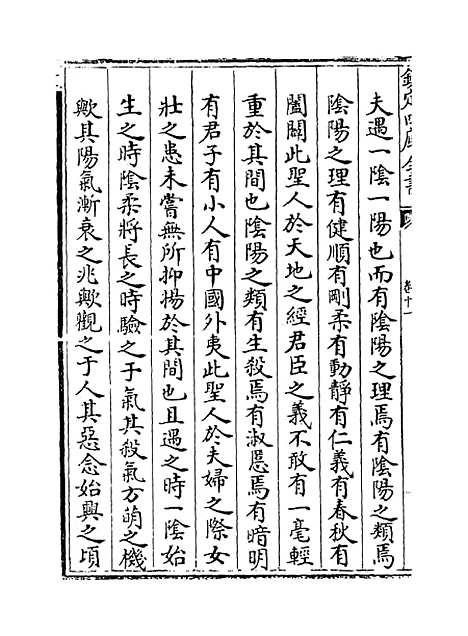 欽定四庫全書
卷十一
夫遇一陰一陽也而有陰陽之理焉有陰陽之類焉
陰陽之理有健順有剛柔有動靜有仁義有春秋有
闔闢此聖人於天地之經君臣之義不敢有一毫輕
重於其間也陰陽之類有生殺焉有淑慝焉有暗明
有君子有小人有中國外夷此聖人於夫婦之際女
壯之患未嘗無所抑揚於其間也且遇之時一陰始
生之時陰柔將長之時驗之于氣其殺氣方萌之機
歟其陽氣漸衰之兆歟觀之于人其惡念始興之頃